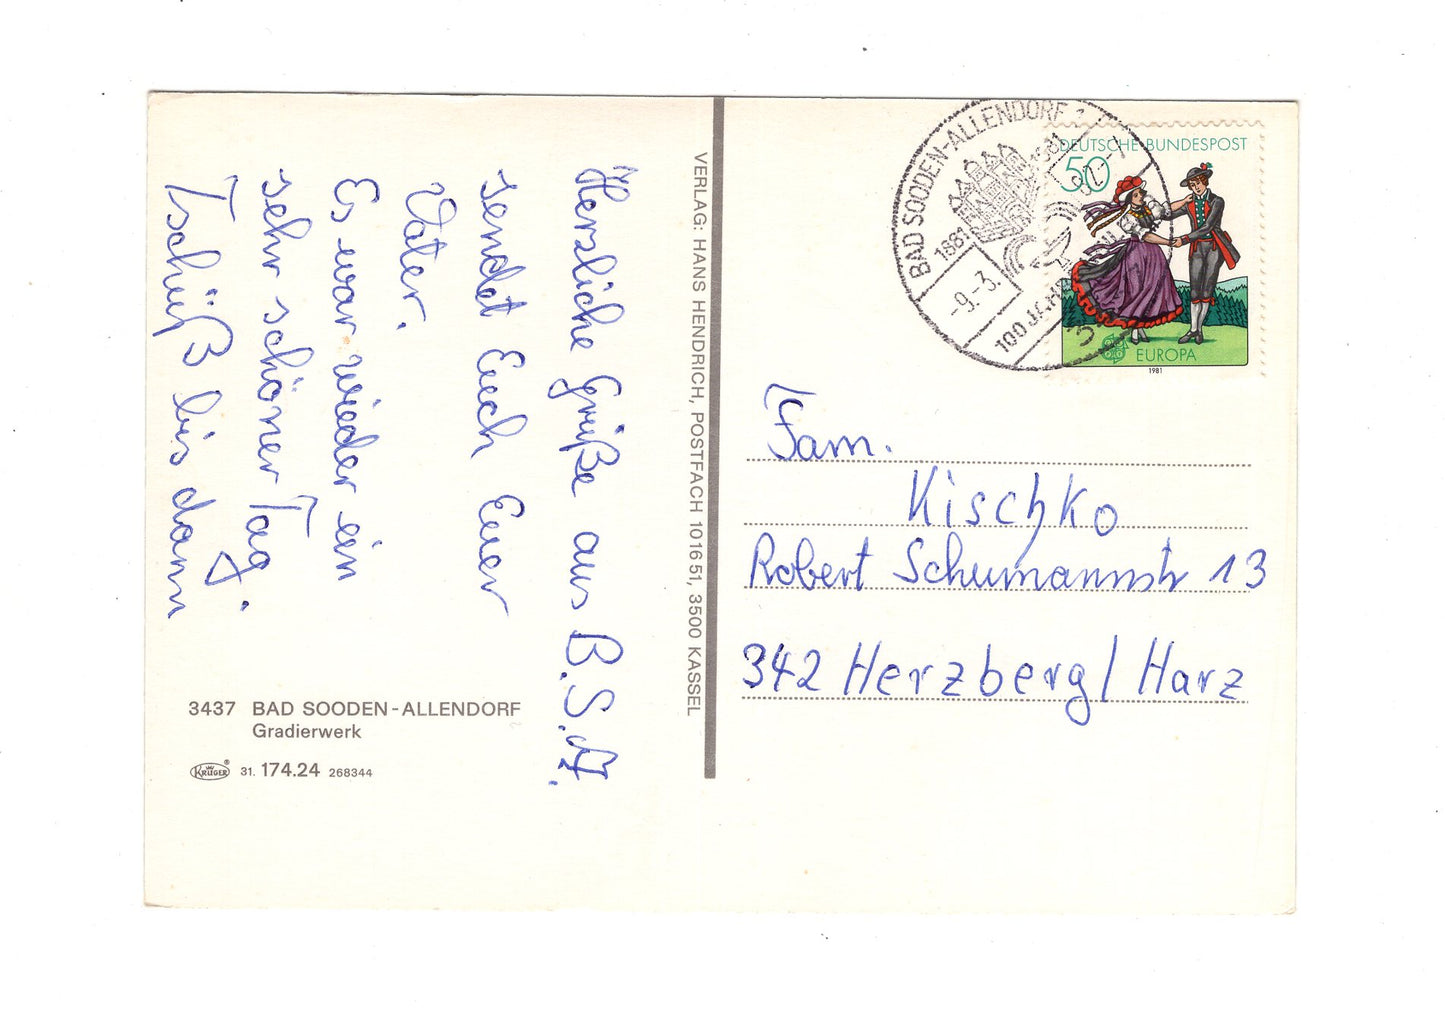 Herzliche Grüße aus B.S.A.
sendet Euch Euer
Vater.
Es war wieder ein
sehr schöner Tag.
Tschüß bis dann
3437 BAD SOODEN-ALLENDORF
Gradierwerk
KRÜGER® 31. 174.24 268344
VERLAG: HANS HENDRICH, POSTFACH 1016 51, 3500 KASSEL
BAD SOODEN-ALLENDORF 1
1881 1981
-9.-3.
100 JAHRE
DEUTSCHE BUNDESPOST
50
EUROPA
1981
Fam.
Kischko
Robert Schumannstr 13
342 Herzberg/Harz